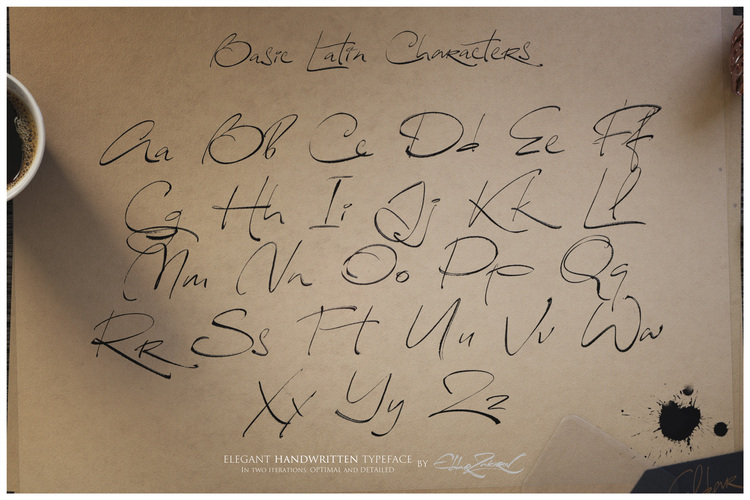 Basic Latin Characters
Aa Bb Cc Dd Ee Ff
Gg Hh Ii Jj Kk Ll
Mm Nn Oo Pp Qq
Rr Ss Tt Uu Vv Ww
Xx Yy Zz
ELEGANT HANDWRITTEN TYPEFACE BY
IN TWO ITERATIONS: OPTIMAL AND DETAILED